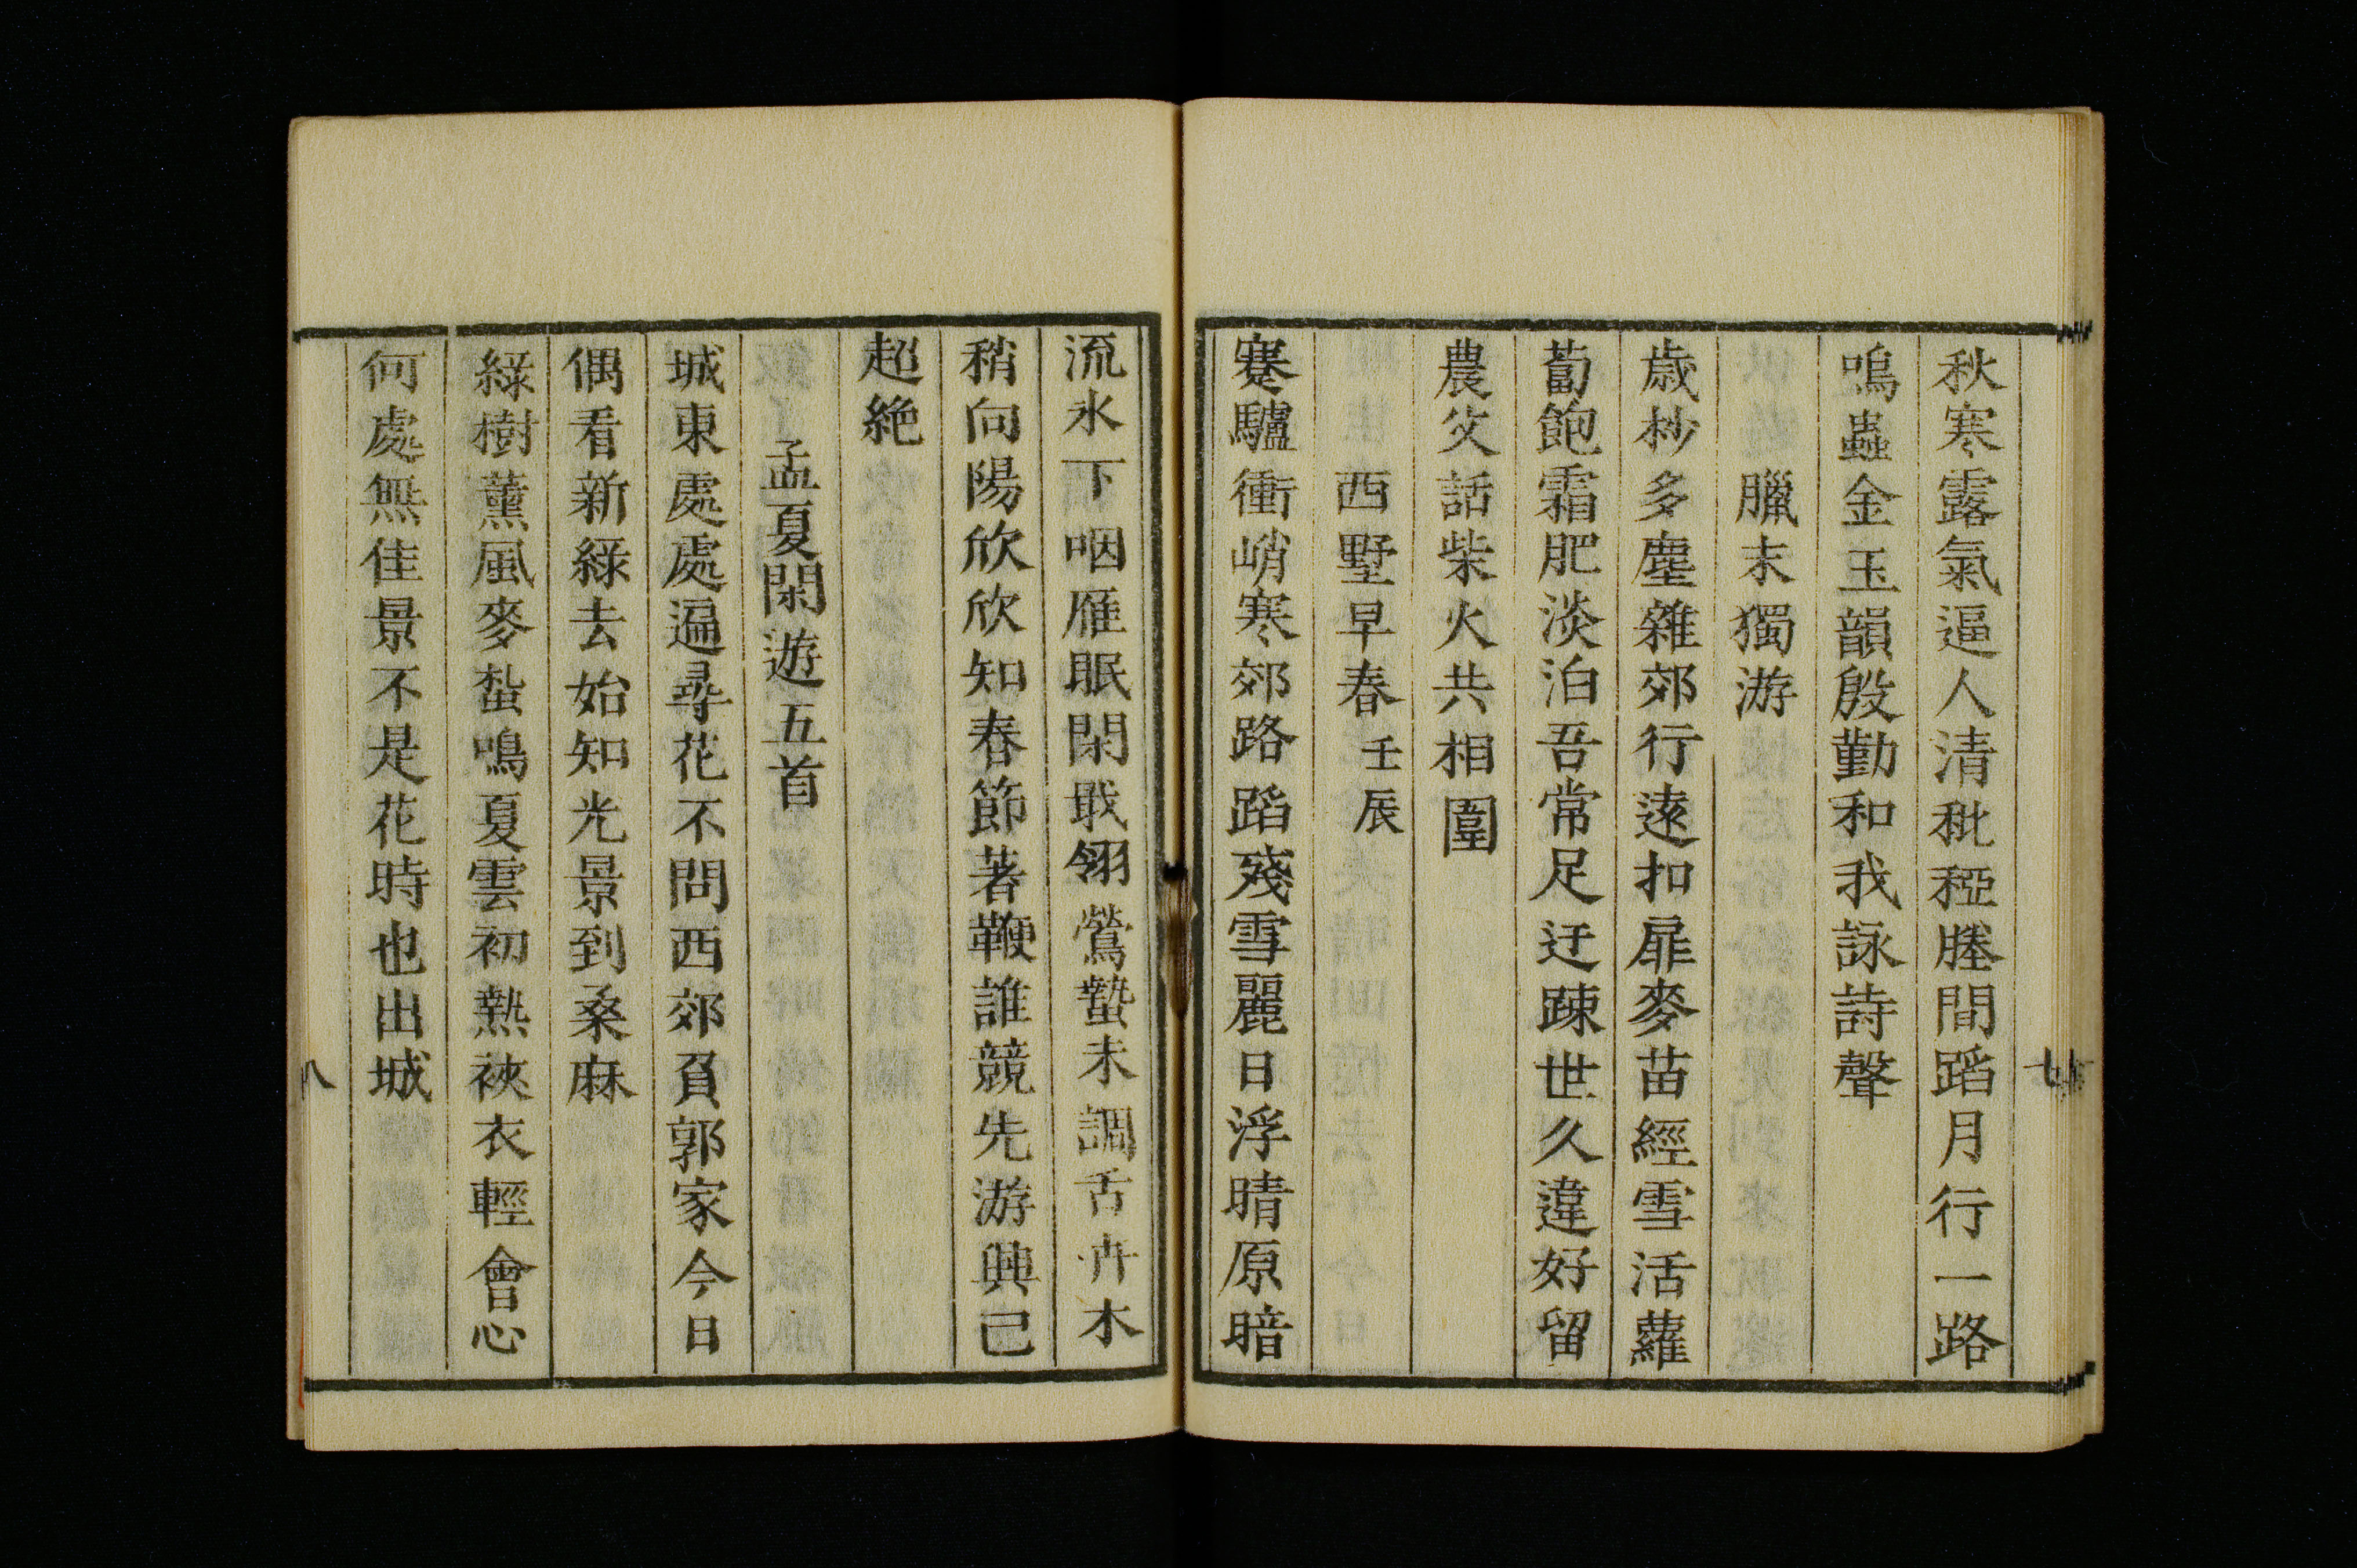 秋寒露氣逼人清秕稏塍間蹈月行一路
鳴蟲金玉韻殷勤和我詠詩聲
臘末獨游
歳杪多塵雜郊行遠扣扉麥苗經雪活蘿
蔔飽霜肥淡泊吾常足迂踈世久違好留
農父話柴火共相圍
西墅早春 壬辰
蹇驢衝峭寒郊路蹈殘雪麗日浮晴原暗
流氷下咽雁眠閑戢翎鶯蟄未調舌卉木
稍向陽欣欣知春節著鞭誰競先游興已
超絶
孟夏閑遊五首
城東處處遍尋花不問西郊負郭家今日
偶看新緑去始知光景到桑麻
緑樹薫風麥蜇鳴夏雲初熱裌衣輕會心
何處無佳景不是花時也出城
八